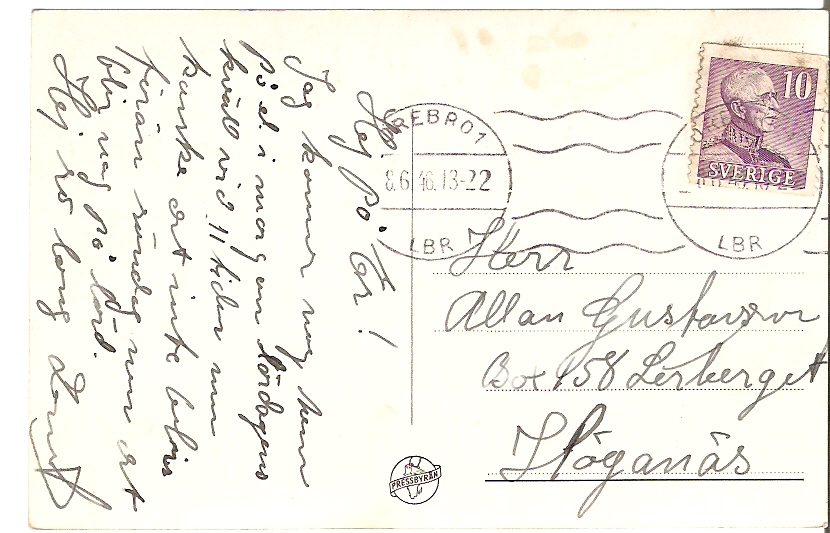 Hej på Er!
Jag kommer nog hem
på d. i morgon lördagens
kväll vid 11 tiden men
kanske att inte
förrän söndag men att
blir nog på lörd.
Hej så länge
ÖREBRO 1
8.6.46.13-22
LBR
LBR
10
SVERIGE
Herr
Allan Gustavsson
Box 158 Lerberget
Höganäs
PRESSBYRÅN